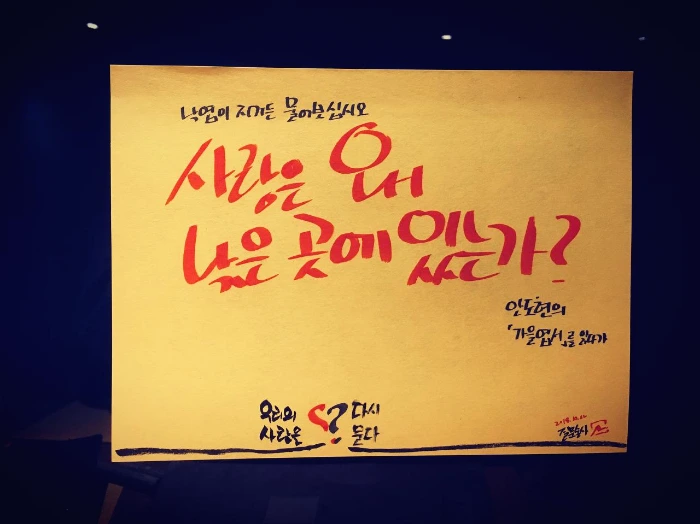 낙엽이 지거든 물어보십시오
사랑은 왜
낮은 곳에 있는가?
안도현의
「가을엽서」를 읽다가
우리의 다시
사랑은 ? 묻다
질문술사